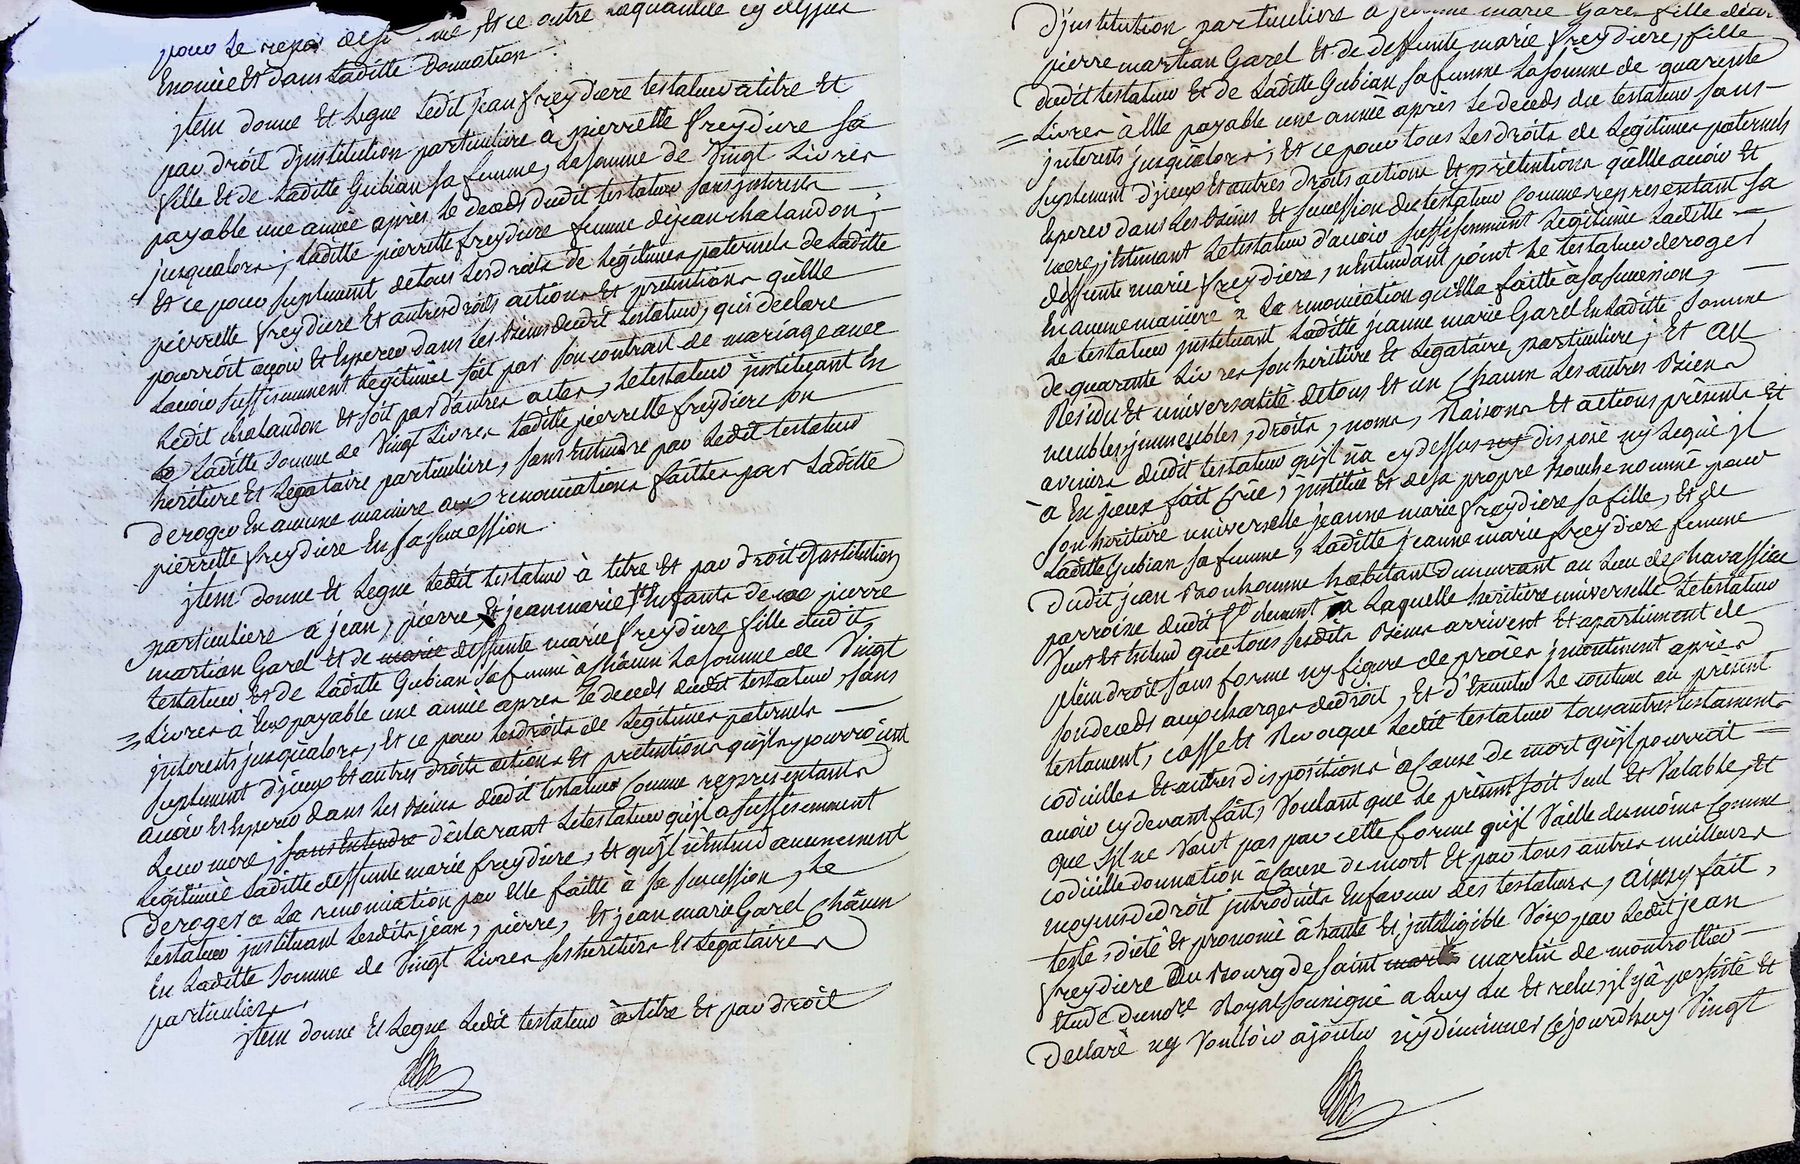 pour le repos de so me, et ce outre laquantité cy dessus
Enoncée Et dans laditte Donnation.
jtem donne Et Legue Ledit jean freydiere testateur à titre Et
par droit d'jnstitution particuliere à pierrette freydiere sa
fille Et de Laditte Gubian sa femme, La somme de Vingt Livres
payable une année après le deceds dudit testateur sans jnterests
jusqualors; Laditte pierrette freydiere femme de jean chalandon;
Et ce pour suplement de tous Les droits de Légitimes paternels de Laditte
pierrette freydiere Et autres droits actions Et pretentions qu'elle
pourroit avoir Et Esperer dans Les biens dudit testateur, qui declare
L'avoir suffisamment Legitimée soit par son contrait de mariage avec
Ledit chalandon Et soit par d'autres actes, Le testateur jnstituant En
Laditte somme de Vingt Livres Laditte pierrette freydiere son
heritiere Et Legataire particuliere, sans Entendre par Ledit testateur
deroger En aucune maniere aux renonciations faittes par Laditte
pierrette freydiere En sa succession.
jtem donne Et Legue Ledit testateur à titre Et par droit d'jnstitution
particuliere a jean, pierre Et jean marie Enfants de pierre
martian Garel Et de marie deffunte marie freydiere fille dudit
testateur Et de Laditte Gubian sa femme à Châcun La somme de Vingt
Livres à Eux payable une année après Le deceds dudit testateur, sans
jnterests jusqualors, Et ce pour Les droits de Légitimes paternels
suplement d'jceux Et autres droits actions Et pretentions qu'jls pourroient
avoir Et Esperer dans Les biens dudit testateur Comme representants
Leur mere; sans Entendre déclarant Le testateur qu'jl a suffisemment
Légitimée Laditte deffunte marie freydiere, Et qu'jl n'Entend aucunement
deroger a La renonciation par Elle faitte à sa succession, Le
testateur jnstituant Lesdits jean, pierre, Et jean marie Garel Châcun
En Laditte somme de Vingt Livres ses heritiers Et Legataires
particuliers
jtem donne Et Legue Ledit testateur à titre Et par droit
d'jnstitution particuliere a jeanne marie Garel fille dud.
pierre martian Garel Et de deffunte marie freydiere, fille
dudit testateur Et de Laditte Gubian sa femme La somme de quarente
Livres à Elle payable une année après Le deceds du testateur sans
jnterests jusqu'alors; Et ce pour tous Les droits de Légitimes paternels
suplement d'jceux Et autres droits actions Et prétentions qu'elle avoir Et
Esperer dans Les biens Et succession du testateur Comme representant sa
mere, Estimant Le testateur d'avoir suffisemment Légitimée Laditte
deffunte marie freydiere, n'Entendant point Le testateur deroger
En aucune maniere à La renonciation qu'elle a faitte à sa succession,
Le testateur jnstituant Laditte jeanne marie Garel En Laditte somme
de quarante Livres son heritiere Et Legataire particuliere; Et au
Residu Et universalité de tous Et un Chacun Les autres Biens
meubles jmmeubles, droits, noms, Raisons Et actions présents Et
avenirs dudit testateur qu'jl n'a cy dessus disposé ny Legué jl
à En jceux fait crée, jnstitué Et de sa propre Bouche nommé pour
son heritiere universelle jeanne marie freydiere sa fille, Et de
Laditte Gubian sa femme, Laditte jeanne marie freydiere femme
dudit jean Bouhomme habitant Demeurant au Lieu de chavassieu
parroisse dudit St devant à Laquelle heritiere universelle Le testateur
Veut Et Entend que tous sesdits Biens arrivent Et apartiennent de
plein droit sans forme ny figure de procès jncontinent après
son deceds aux charges de droit, Et d'Executer Le contenu au present
testament, casse Et Revoque Ledit testateur tous autres testaments
codicilles Et autres dispositions à Cause de mort qu'jl pourroit
avoir cy devant fait, Voulant que Le présent soit seul Et Valable, Et
que s'jl ne Vaut pas par cette forme qu'jl Vaille du moins Comme
codicille donnation à Cause de mort Et par tous autres meilleurs
moyens de droit jntroduits En faveur des testateurs, ainsy fait,
testé, dicté Et prononcé à haute Et jntelligible Voix par Ledit jean
freydiere Au Bourg de saint martin de montrottier
Etude du no.re Royal soussigné a Luy Lu Et relu, jl y a persisté Et
Declaré ny Voulloir ajouter n'y diminuer Cejourdhuy Vingt